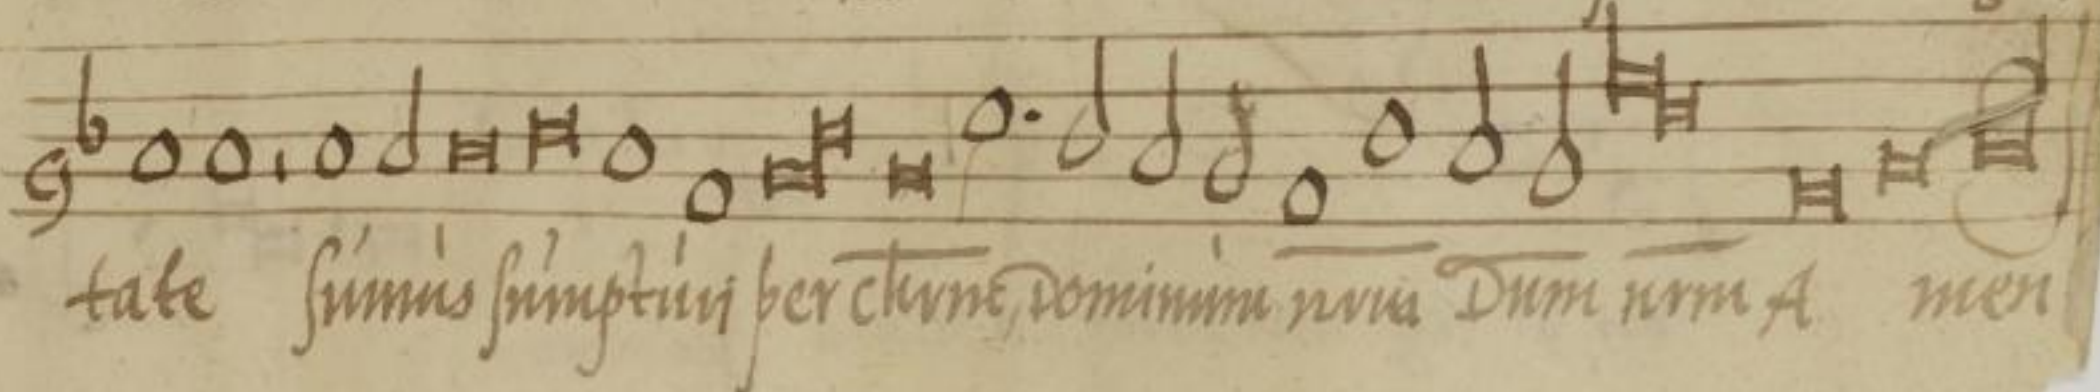 tate sumus sumpturi per chrm Dominum nrm Dum nrm A men